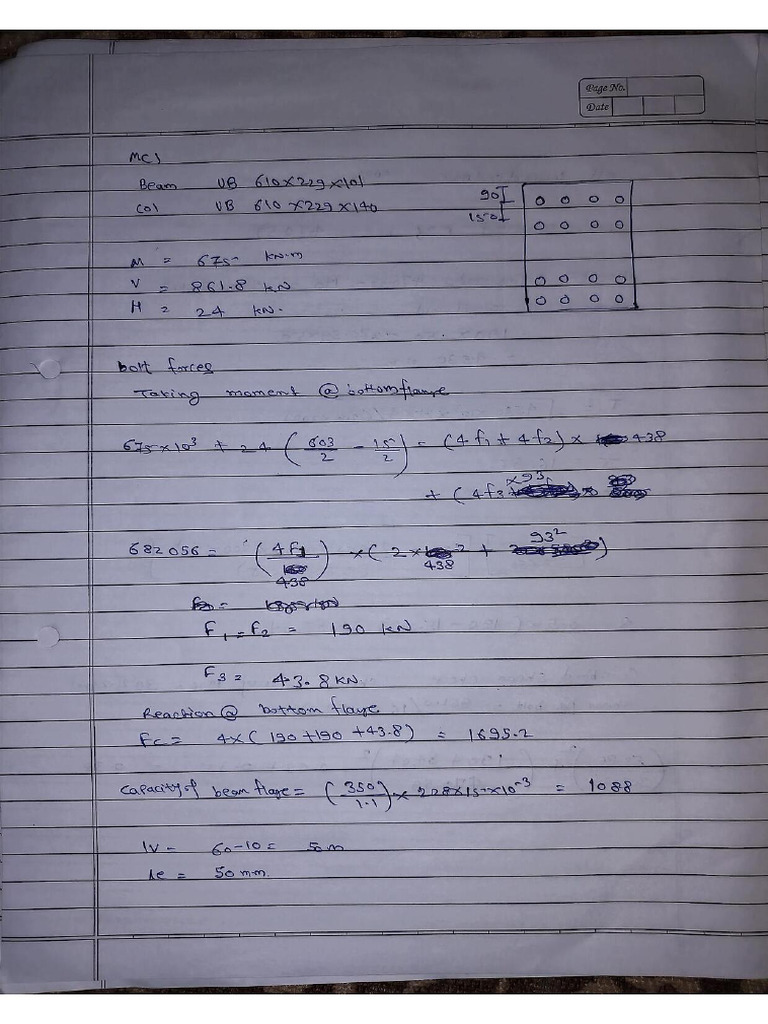 Page No.
Date
MCJ
Beam UB 610x229x101
Col UB 610x229x140
90
150
M = 675 kN.m
V = 861.8 kN
H = 24 kN.
bolt forces
Taking moment @ bottom flange
675x10³ + 24 ( 603/2 - 15/2 ) = (4f1 + 4f2) x 438
+ (4f3 x93
682056 = ( 4F1/438 ) x ( 2x438² + 93² )
F1 = F2 = 190 kN
F3 = 43.8 kN.
Reaction @ bottom flange
Fc = 4x( 190 +190 +43.8) = 1695.2
Capacity of beam flage = ( 350/1.1 ) x 228x15x10⁻³ = 1088
lv = 60-10 = 50 m
le = 50 mm.